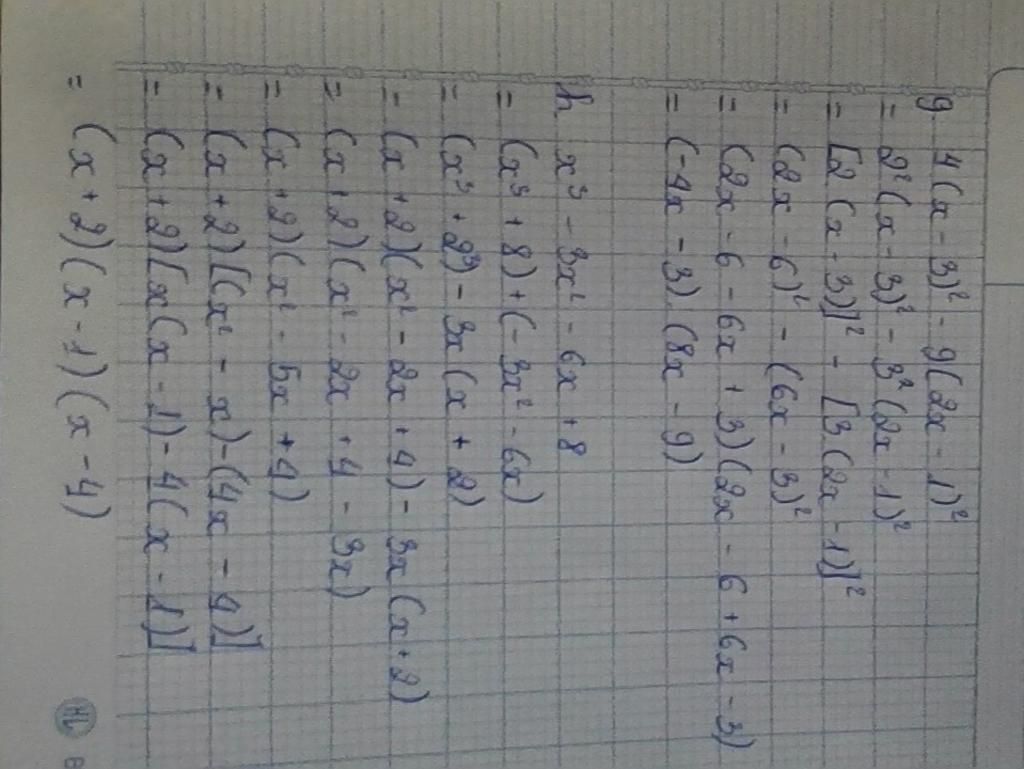 g 4(x - 3)² - 9(2x - 1)²
= 2²(x - 3)² - 3²(2x - 1)²
= [2(x - 3)]² - [3(2x - 1)]²
= (2x - 6)² - (6x - 3)²
= (2x - 6 - 6x + 3)(2x - 6 + 6x - 3)
= (-4x - 3)(8x - 9)
h x³ - 3x² - 6x + 8
= (x³ + 8) + (-3x² - 6x)
= (x³ + 2³) - 3x(x + 2)
= (x + 2)(x² - 2x + 4) - 3x(x + 2)
= (x + 2)(x² - 2x + 4 - 3x)
= (x + 2)(x² - 5x + 4)
= (x + 2)[(x² - x) - (4x - 4)]
= (x + 2)[x(x - 1) - 4(x - 1)]
= (x + 2)(x - 1)(x - 4)